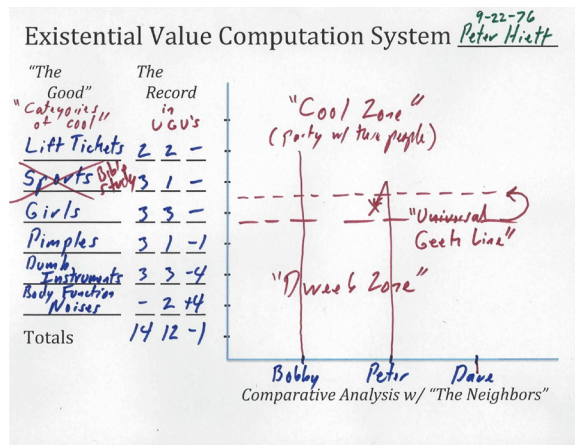 9-22-76
Existential Value Computation System Peter Hiett
"The Good"
The Record
"Categories of Cool"
in UGU's
Lift Tickets 2 2 -
Sports Bible Study 3 1 -
Girls 3 3 -
Pimples 3 1 -1
Dumb Instruments 3 3 -4
Body Function Noises - 2 +4
Totals 14 12 -1
"Cool Zone"
(party w/ these people)
"Universal
Geek Line"
"Dweeb Zone"
Bobby Peter Dave
Comparative Analysis w/ "The Neighbors"